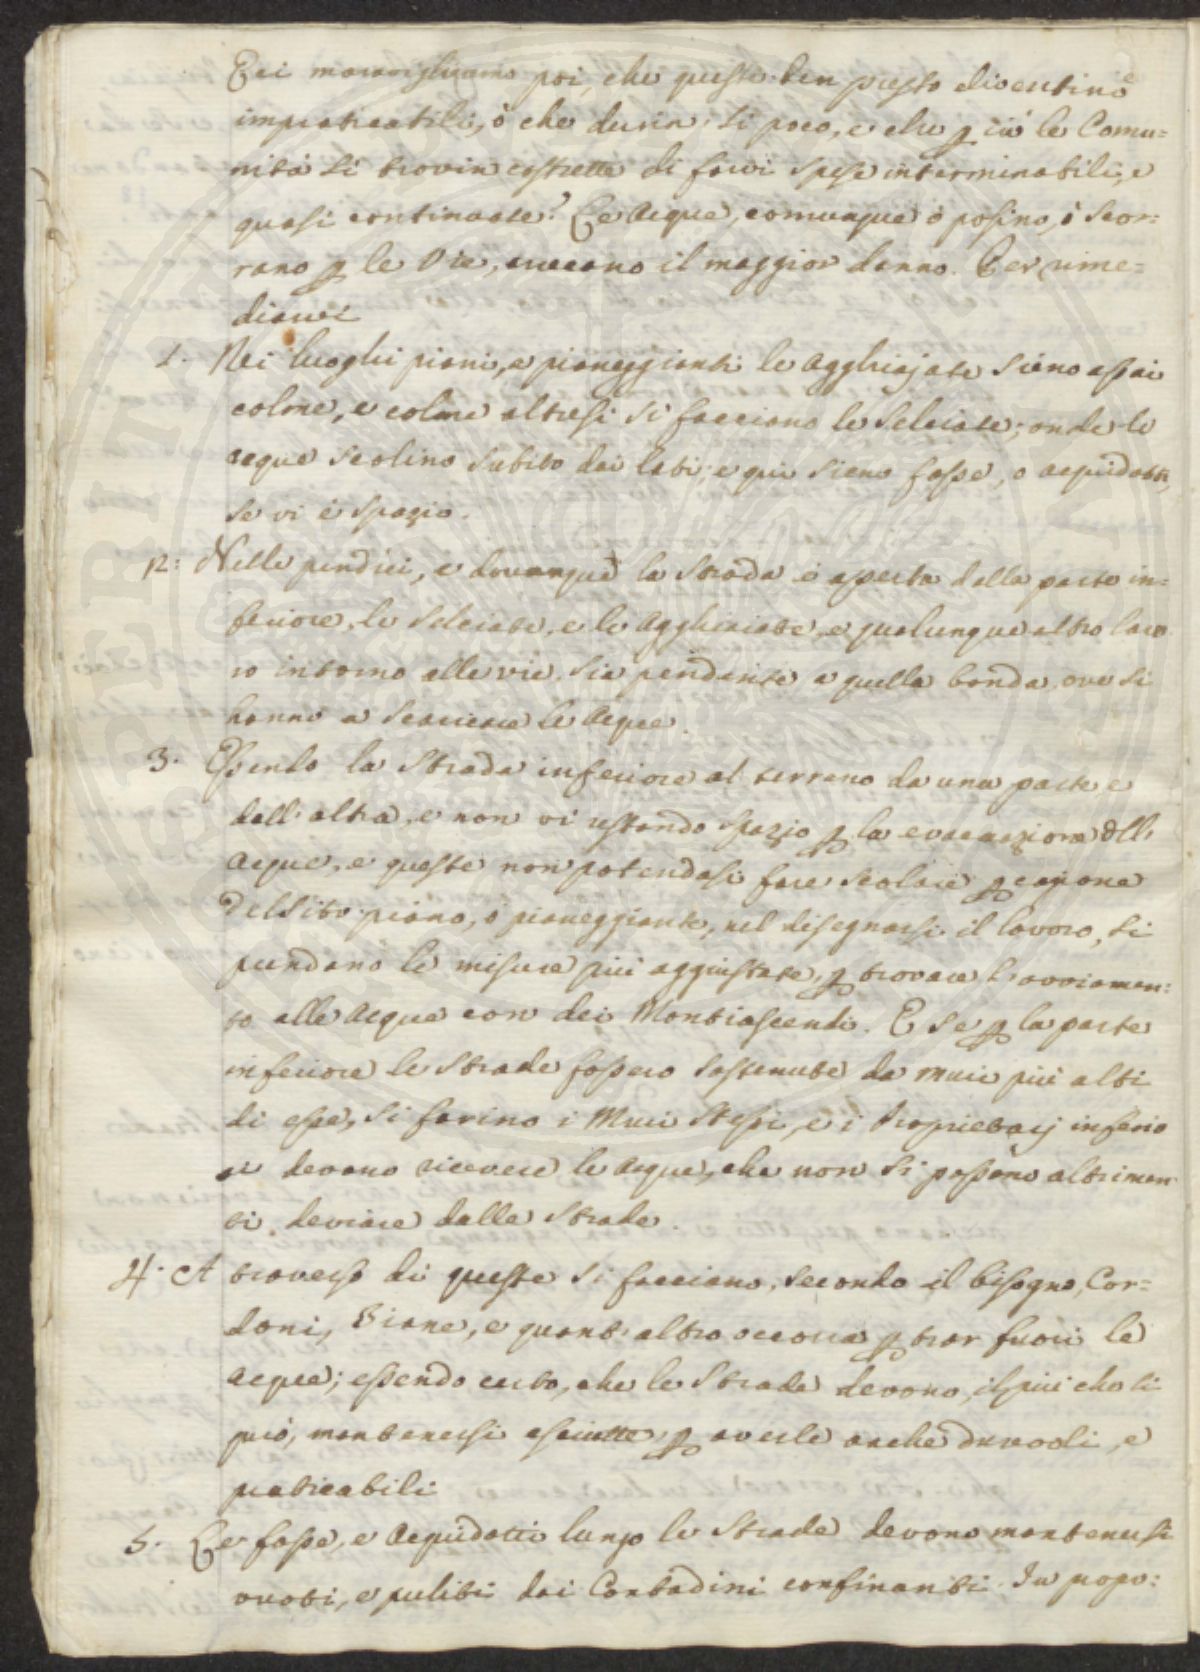 E ci maravigliamo poi, che queste ben presto diventino
impraticabili, ò che durin sì poco, e che p ciò le Comu=
nità si trovin costrette di farvi spese interminabili, e
quasi continuate? Le Acque, comunque ò posino, ò scor=
rano p le Vie, arrecano il maggior danno. Per rime=
diarvi
1. Nei luoghi piani, e pianeggianti le Agghiajate sieno assai
colme, e colme altresì si facciano le Selciate; onde le
acque scolino subito dai lati; e qui sieno fosse, o acquidotti,
se vi è spazio.
2: Nelle pendici, e dovunque la Strada è aperta dalla parte in=
feriore, le Selciate, e le Agghiaiate, e qualunque altro lavo
ro intorno alle vie, sia pendente a quella banda, ove si
hanno a scaricare le Acque.
3. Essendo la Strada inferiore al terreno da una parte e
dall'altra, e non vi restando spazio p la evacuazione dlle
Acque, e queste non potendosi fare scolare p cagione
del sito piano, ò pianeggiante, nel disegnarsi il lavoro, si
prendano le misure più aggiustate, p trovare l'avviamen=
to alle Acque con dei Montiascendi. E se p la parte
inferiore le Strade fossero sostenute da muri più alti
di esse, si forino i Muri stessi, e i Proprietarj inferio
ri devono ricevere le Acque, che non si possono altrimen
ti deviare dalle Strade.
4. A traverso di queste si facciano, secondo il bisogno, Cor=
doni, Piane, e quant'altro occorra p trar fuori le
Acque; essendo certo, che le Strade devono, il più che si
può, mantenersi asciutte, p averle anche durevoli, e
praticabili
5. Le fosse, e Acquidotti lungo le Strade devono mantenersi
vuoti, e puliti dai Contadini confinanti. In propo: